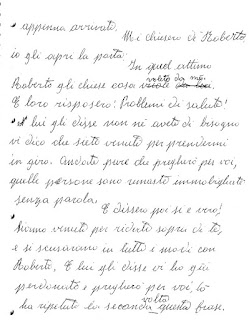 • appenna arrivato.
Mi chiesero di Roberto
io gli aprì la porta.
In quel attimo
Roberto gli chiese cosa volete da noi.
E loro risposero! Problemi di salute!
• A lui gli disse non ne avete di bisogno
vi dico che siete venuti per prendermi
in giro. Andate pure che pregherò per voi,
quelle persone sono rimaste immobilizzate
senza parola.
E dissero poi si e vero!
siamo venuti per ridere sopra di te,
e si scusarono in tutti e modi con
Roberto, E lui gli disse vi ho già
perdonato e pregherò per voi, lo
• ha ripetuto la seconda volta questa frase.